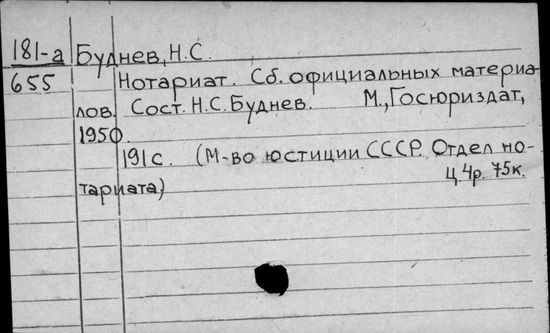 181-а Буднев, Н.С.
655 Нотариат. Сб. официальных материа-
лов. Сост. Н.С. Буднев. М., Госюриздат,
1950.
191 с. (М-во юстиции СССР. Отдел но-
тариата) Ц. 4р. 75к.